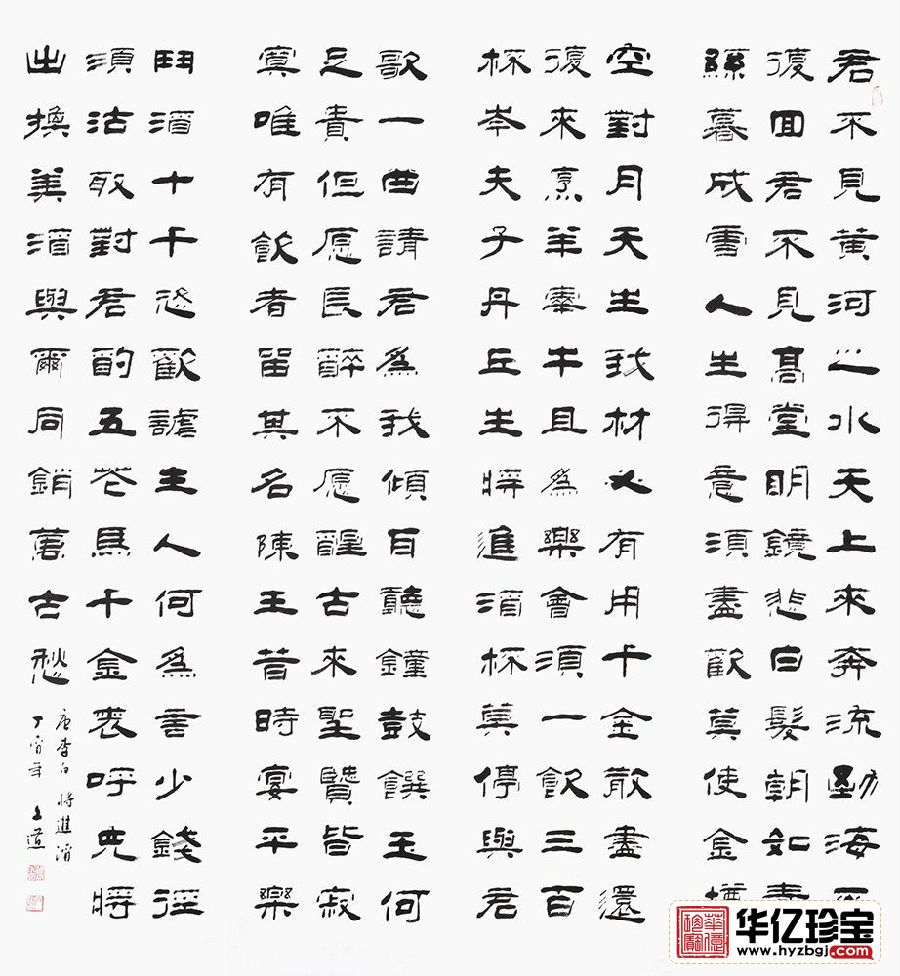 君不見黄河之水天上來奔流到海不
復回君不見高堂明鏡悲白髮朝如青
絲暮成雪人生得意須盡歡莫使金樽
空對月天生我材必有用千金散盡還
復來烹羊宰牛且為樂會須一飲三百
杯岑夫子丹丘生將進酒杯莫停與君
歌一曲請君為我傾耳聽鐘鼓饌玉何
足貴但愿長醉不愿醒古來聖賢皆寂
寞唯有飲者留其名陳王昔時宴平樂
鬥酒十千恣歡謔主人何為言少錢徑
須沽取對君酌五花馬千金裘呼兒將
出換美酒與爾同銷萬古愁
唐李白將進酒
丁酉年
华亿珍宝
www.hyzbgj.com